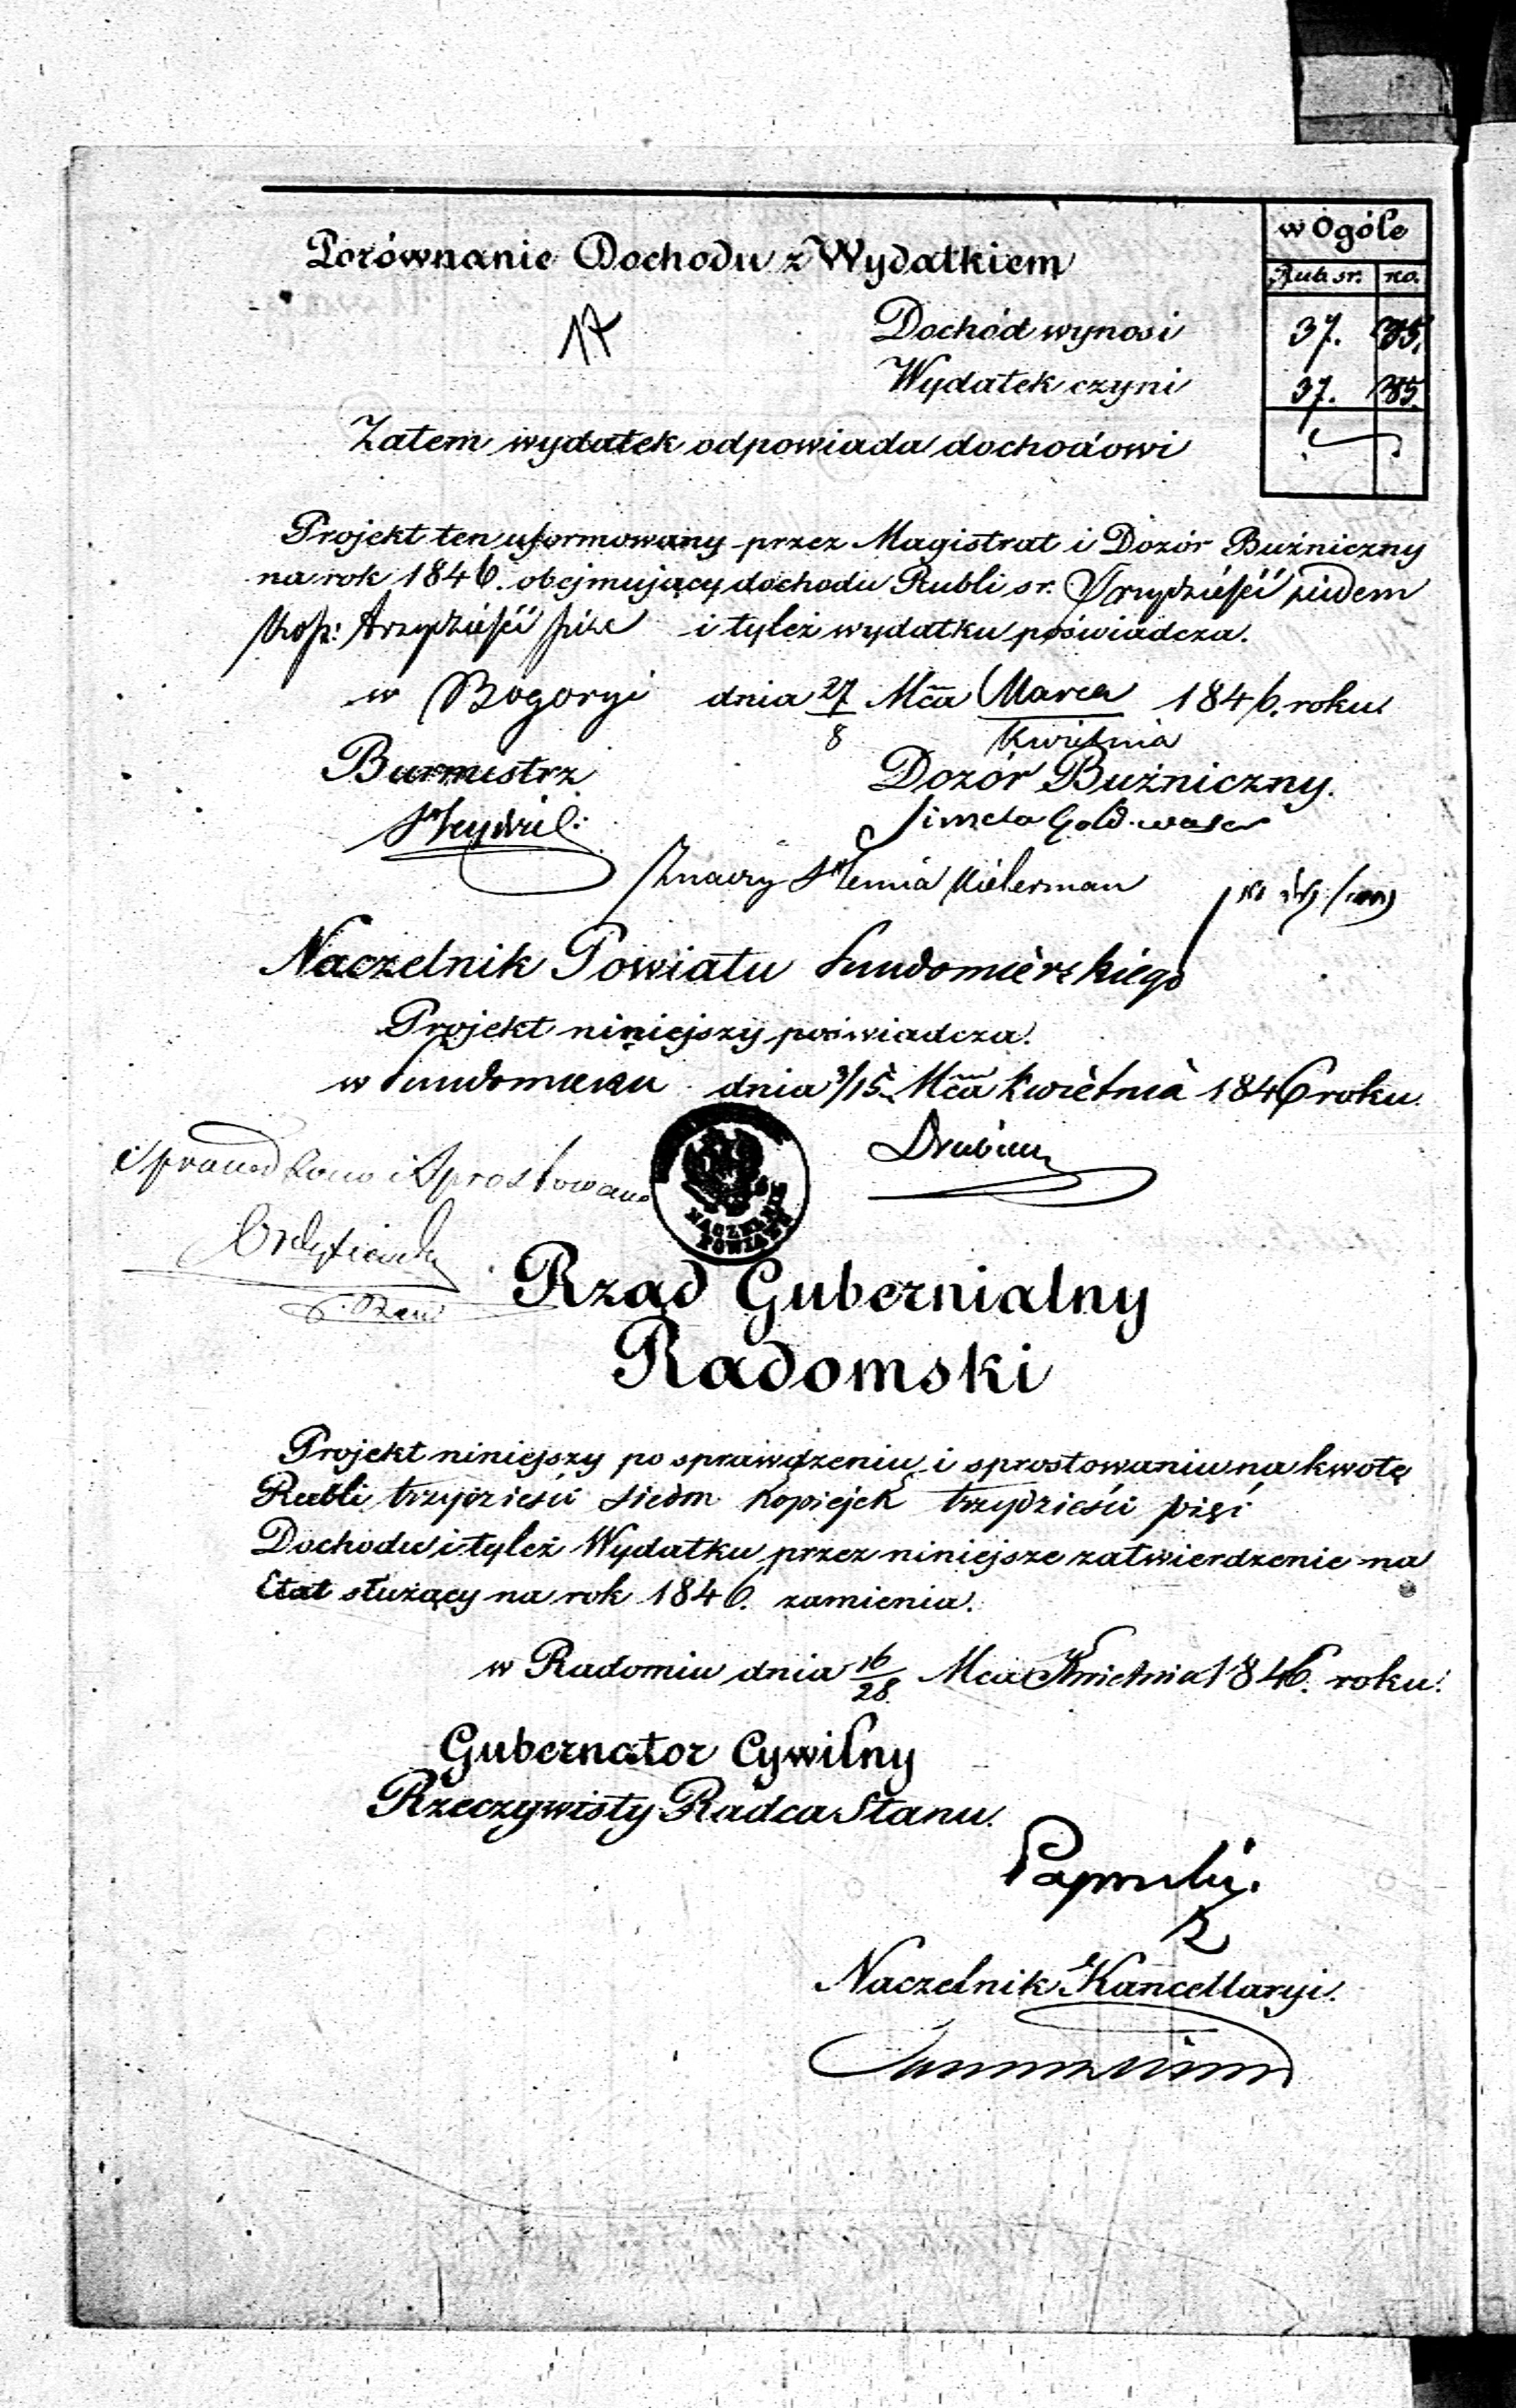 w Ogóle
Porównanie Dochodu z Wydatkiem
Rub. sr. ko.
17
Dochód wynosi 37. 35.
Wydatek czyni 37. 35.
Zatem wydatek odpowiada dochodowi
Projekt ten uformowany przez Magistrat i Dozór Buźniczny
na rok 1846. obejmujący dochodu Rubli sr. Trzydzieści siedem
kop: trzydzieści i tyleż wydatku poświadcza.
w Bogoryi dnia 27/8 Mca Marca/Kwietnia 1846. roku.
Burmistrz Dozór Buźniczny.
Gold waser
Znaczy
Naczelnik Powiatu Sandomierskiego
Projekt niniejszy poświadcza.
w Sandomierzu dnia 3/15 Mca Kwietnia 1846 roku.
Sprawdzono i Sprostowano
NACZELNIK
POWIATU
Rząd Gubernialny
Radomski
Projekt niniejszy po sprawdzeniu i sprostowaniu na kwotę
Rubli trzydzieści siedm kopiejek trzydzieści pięć
Dochodu i tyleż Wydatku przez niniejsze zatwierdzenie na
Etat służący na rok 1846. zamienia.
w Radomiu dnia 16/28. Mca Kwietnia 1846. roku.
Gubernator Cywilny
Rzeczywisty Radca Stanu.
Naczelnik Kancellaryi.